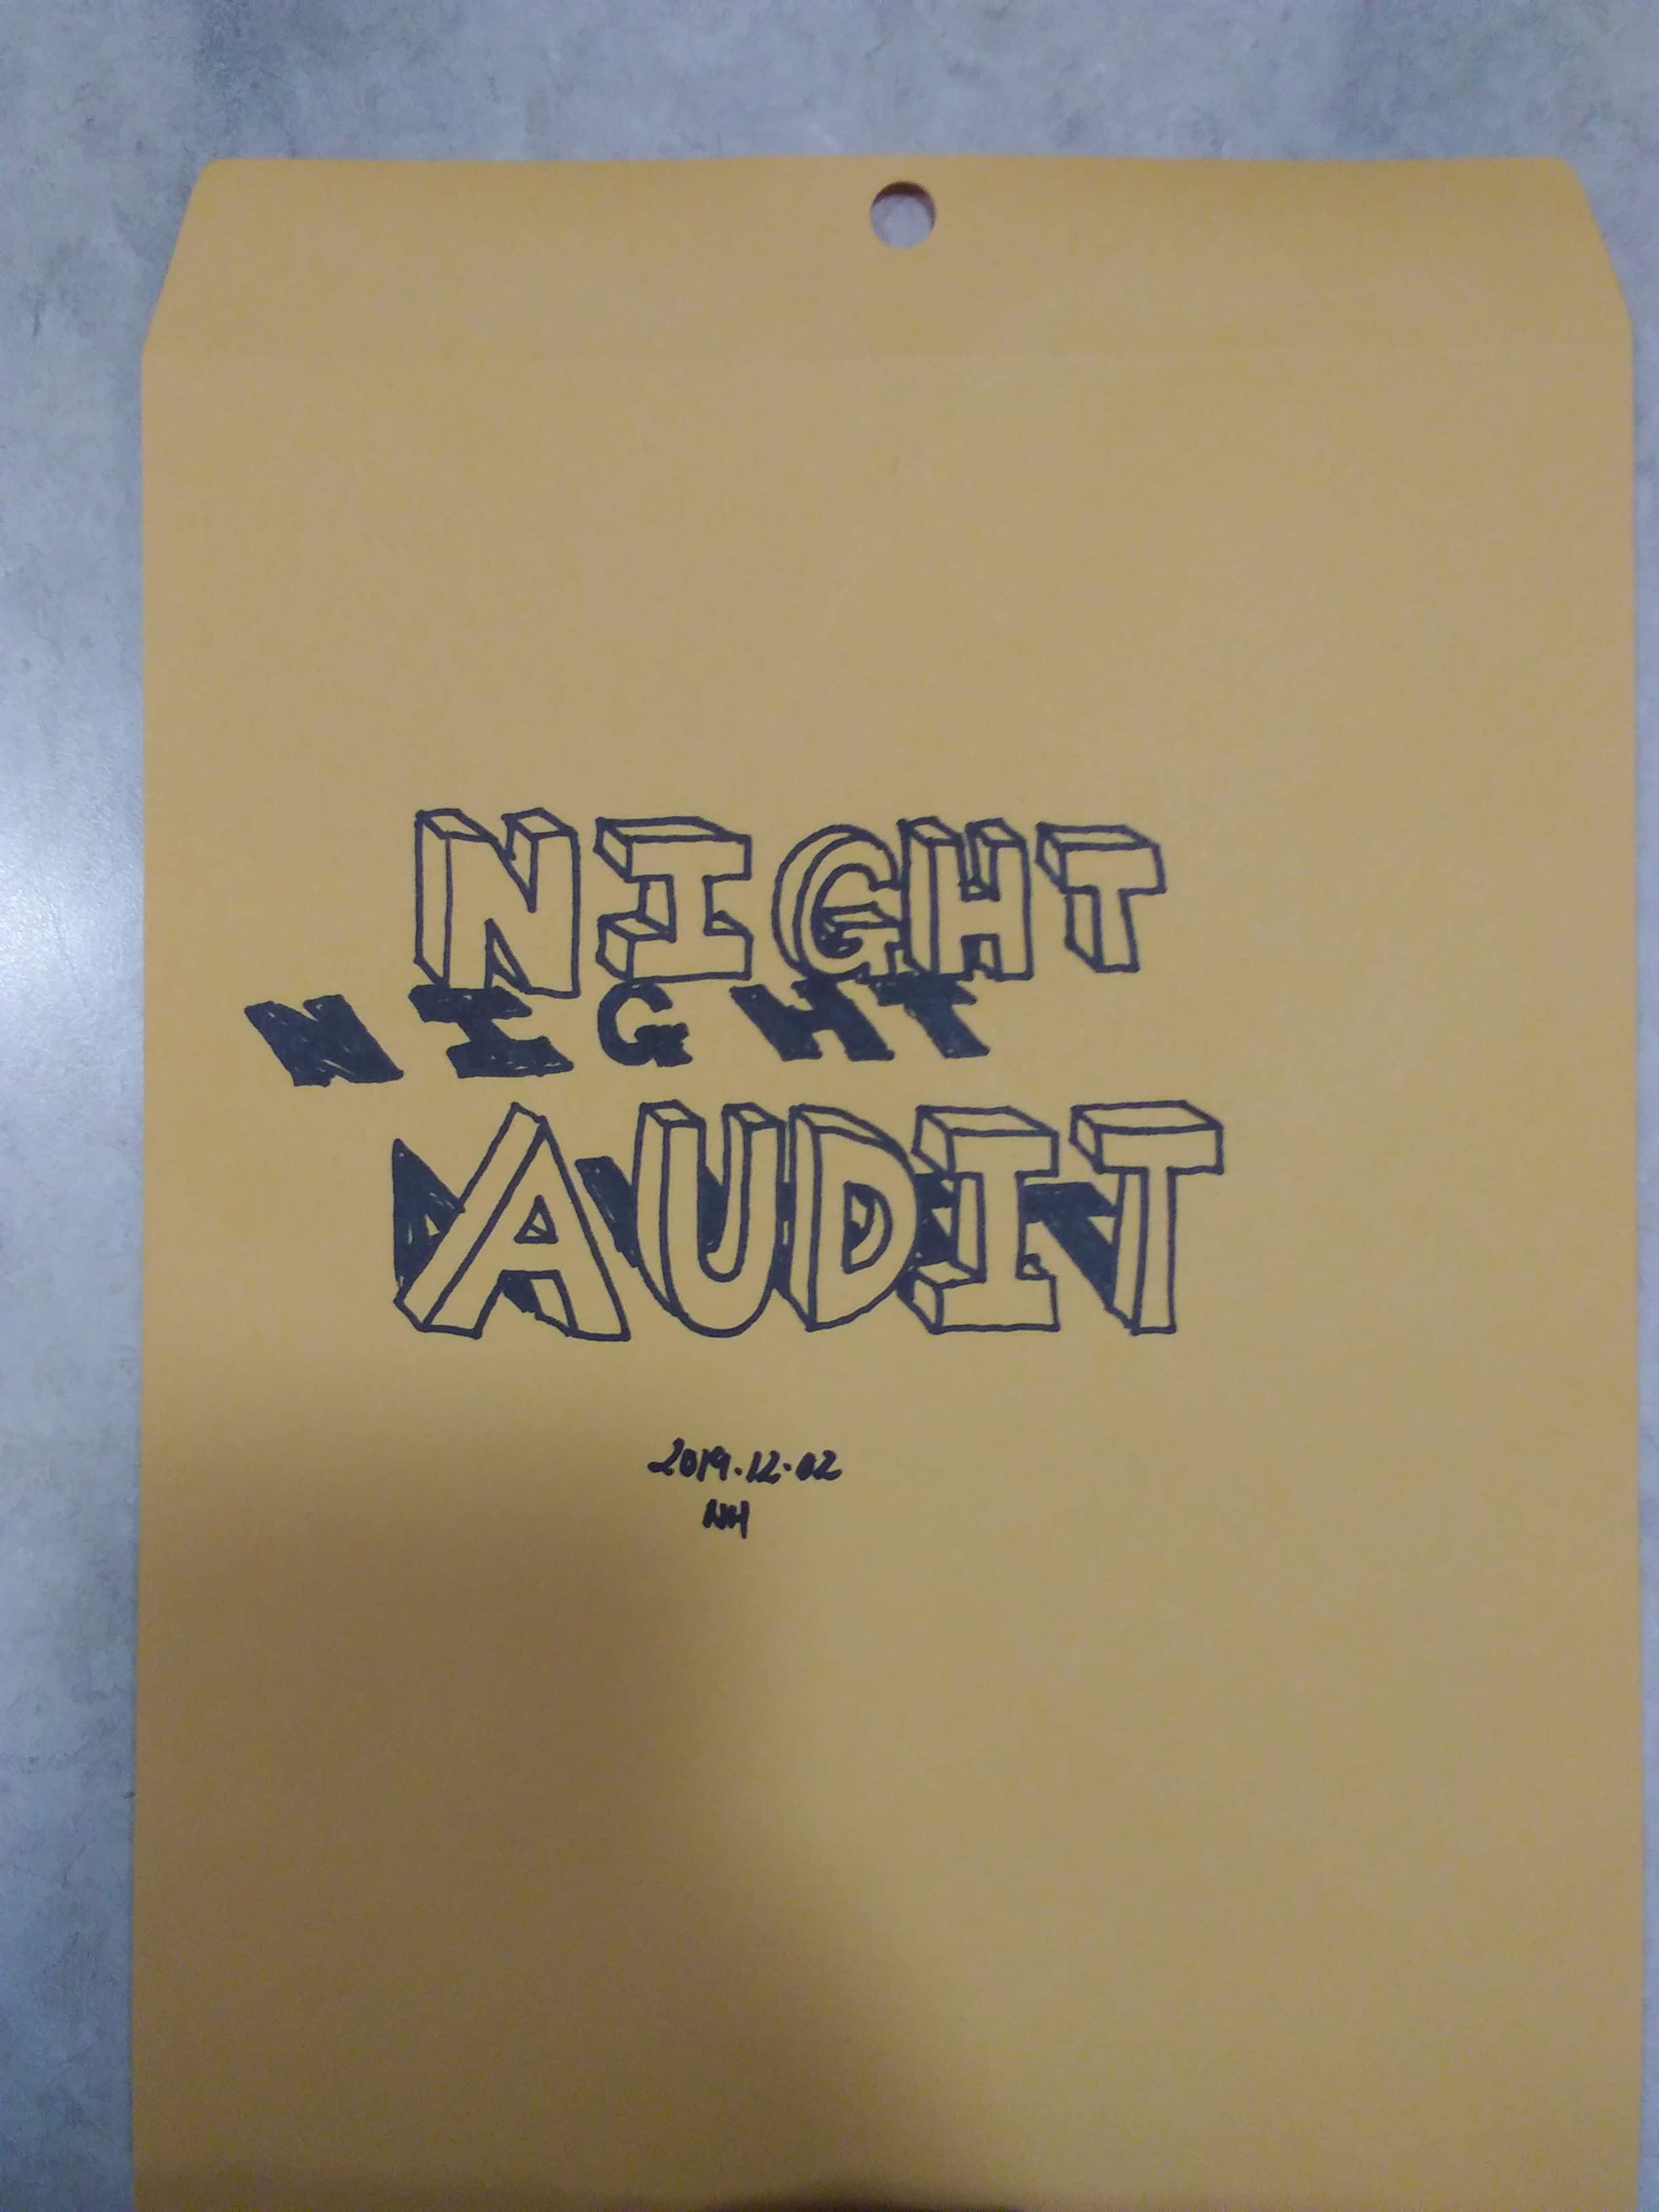 NIGHT
NIGHT
AUDIT
2019.12.02
NH